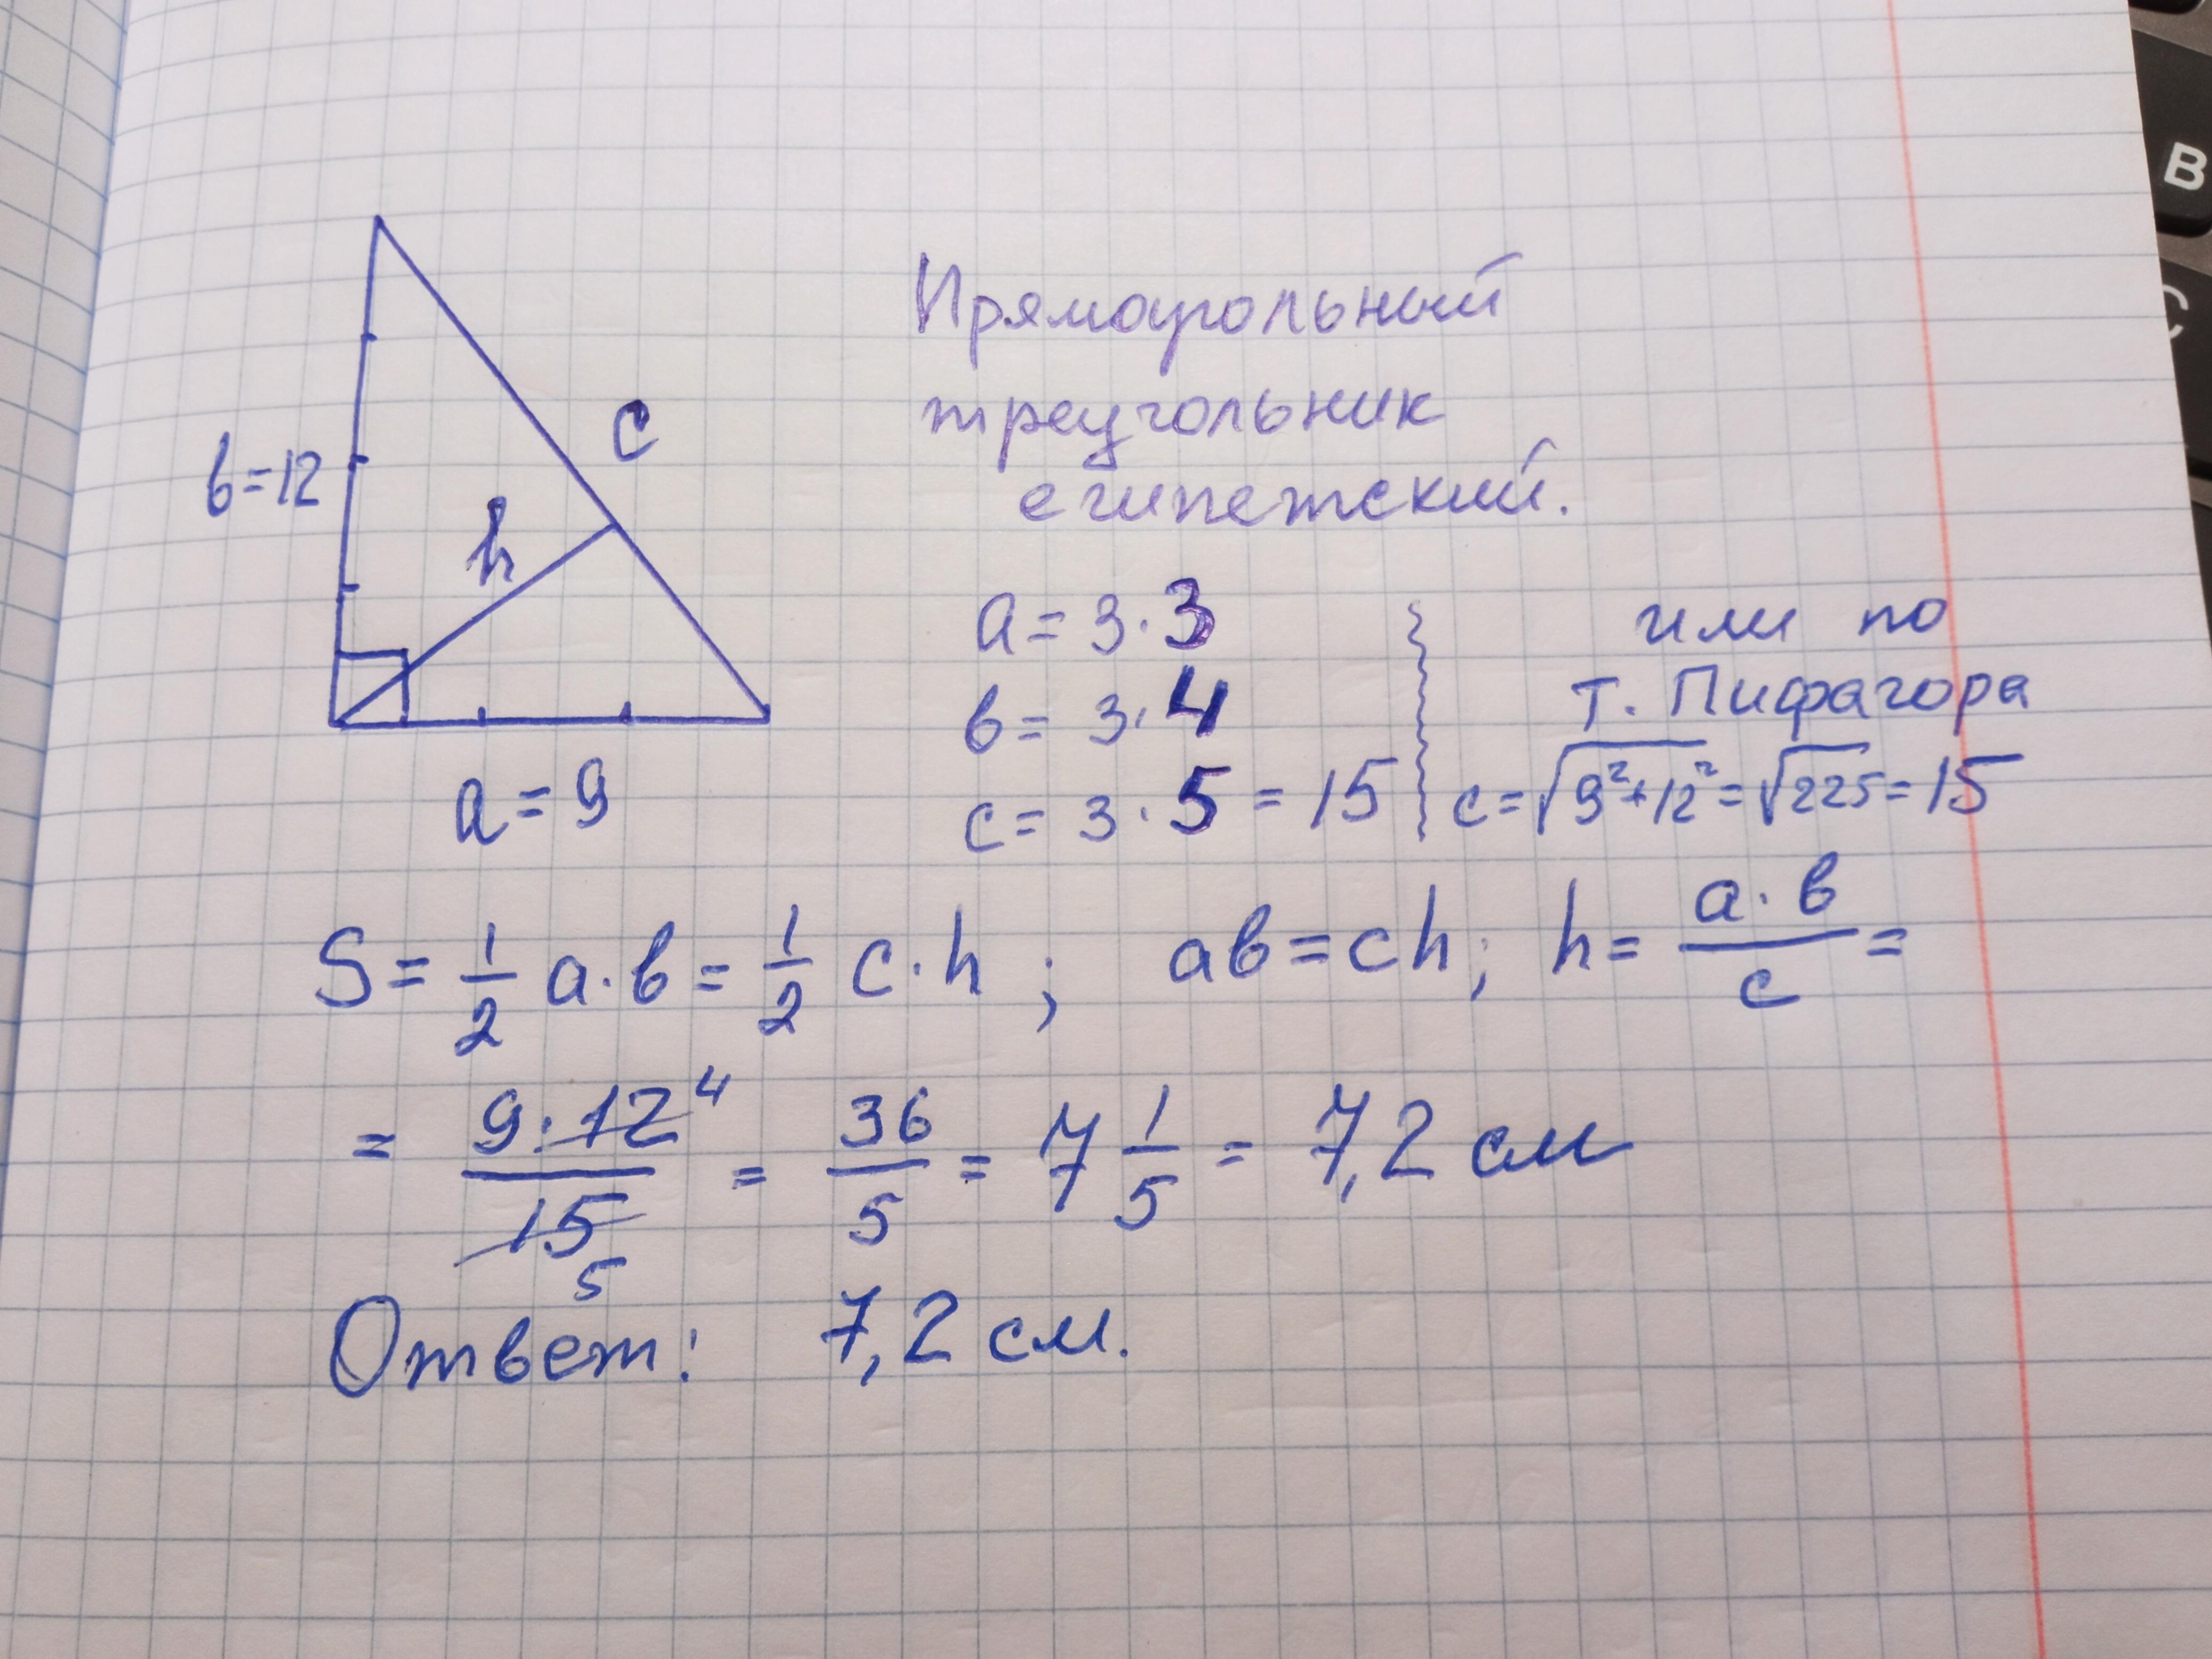 Прямоугольный
треугольник
египетский.
c
b=12
h
a = 9
a = 3·3
b = 3·4
c = 3·5 = 15
или по
т. Пифагора
c=√9²+12²=√225=15
S = 1/2 a·b = 1/2 c·h ; ab=ch; h= a·b/c =
= 9·12 4/15 5 = 36/5 = 7 1/5 = 7,2 см
Ответ: 7,2 см.
B
C